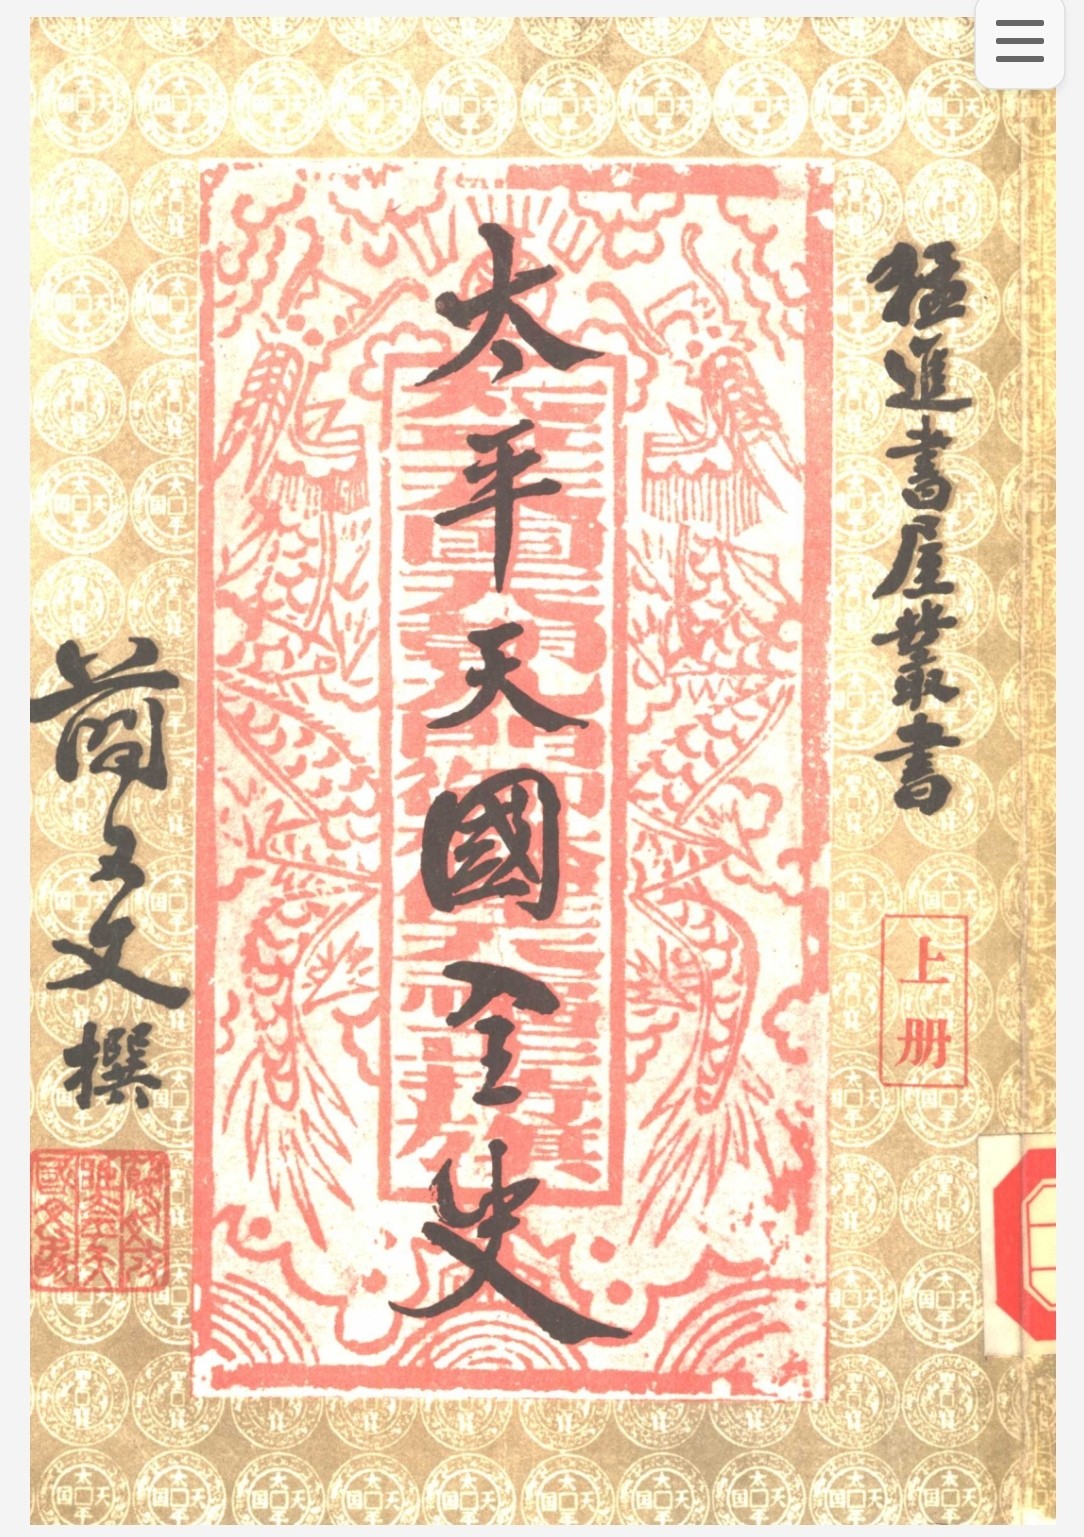 猛進書屋叢書
上册
太平天國全史
簡又文撰